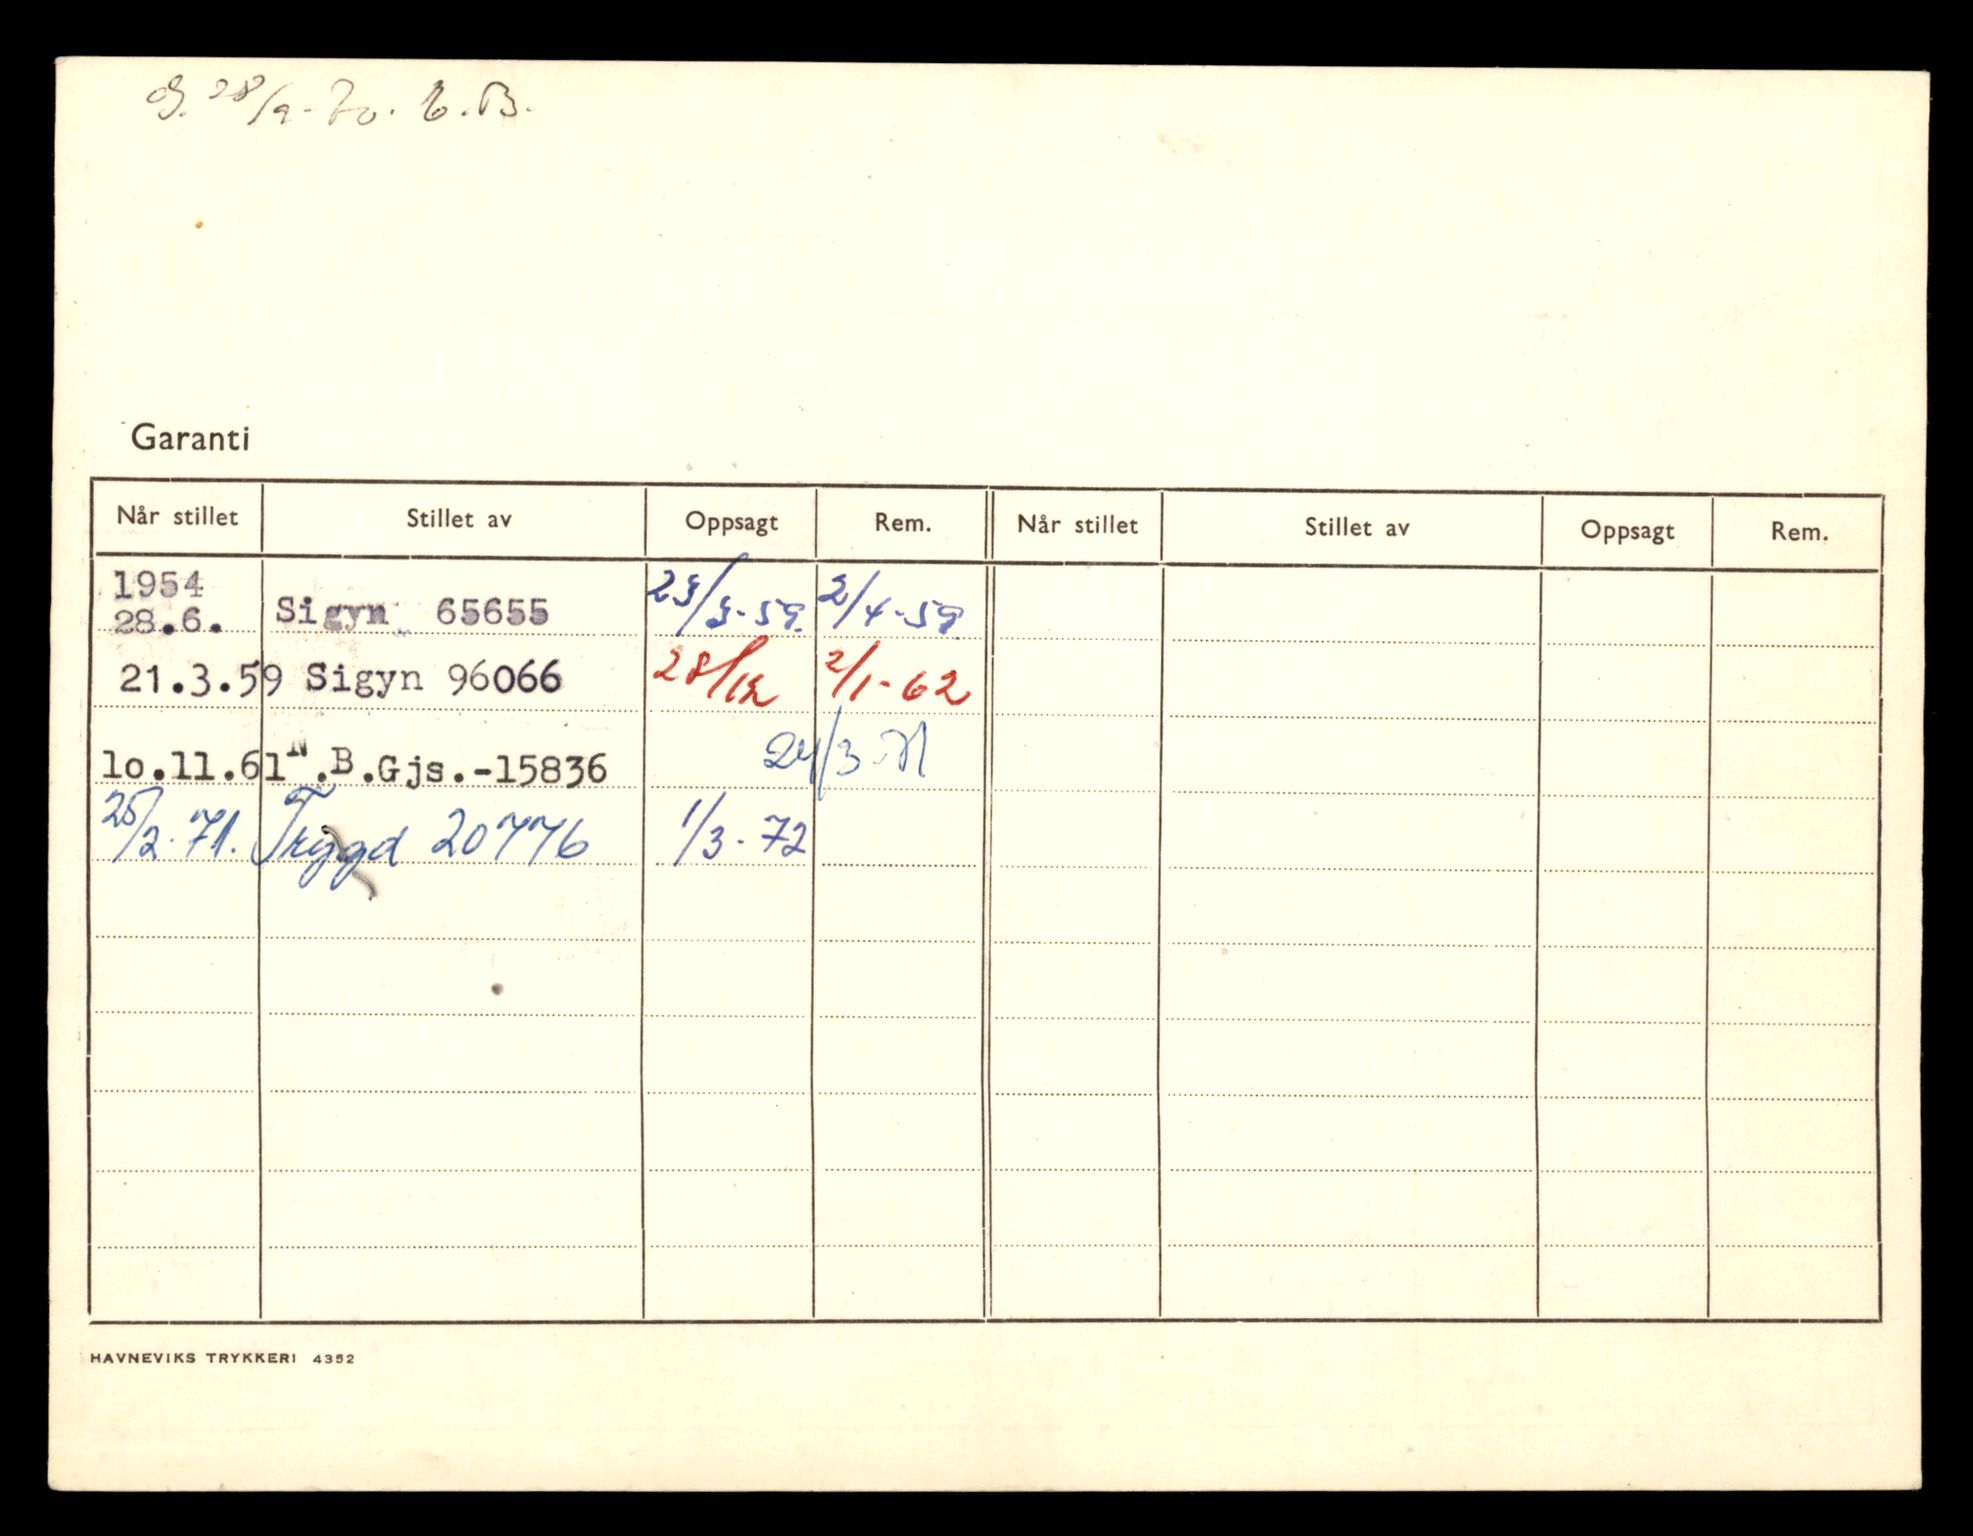 28/9-70. E.B.
Garanti
Når stillet Stillet av Oppsagt Rem. Når stillet Stillet av Oppsagt Rem.
1954
28.6. Sigyn 65655 23/3-59. 2/4-59
21.3.59 Sigyn 96066 28/12 2/1-62
lo.11.61 N.B.Gjs.-15836 24/3-71
25/2.71. Trygd 20776 1/3-72
HAVNEVIKS TRYKKERI 4352